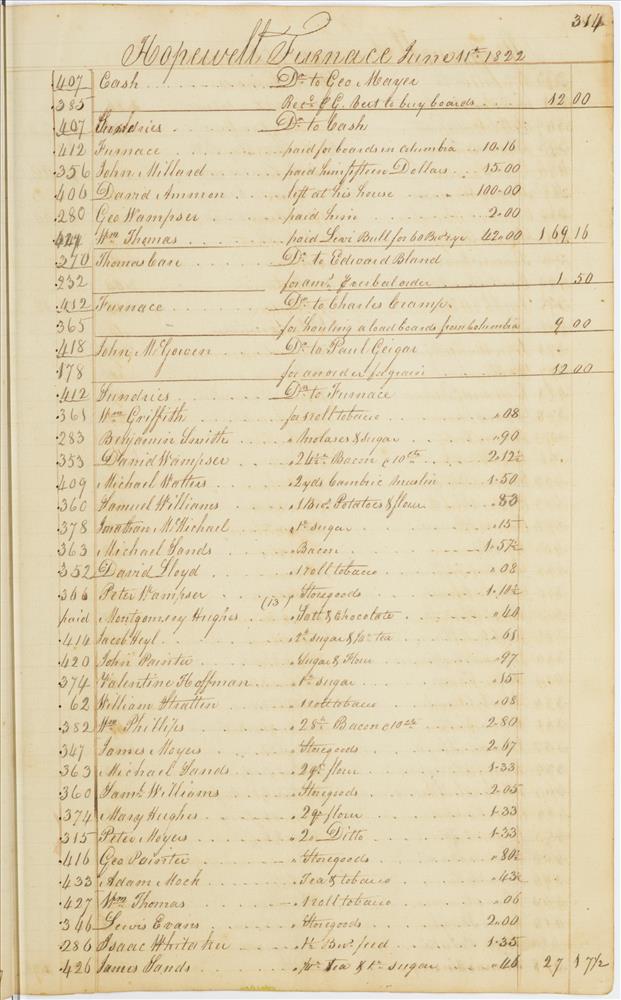 314
Hopewell Furnace June 11th 1822
407 Cash Dr to Geo Mayer
385 Recd C.C. to buy boards 12 00
407 Sundries Dr to Cash
412 Furnace paid for boards in Columbia 10.16
356 John Millard paid him fifteen Dollars 15.00
406 David Ammon left at his house 100.00
280 Geo Wampser paid him 2.00
427 Wm Thomas paid Levi Bull for 60 Bus rye 42.00 169 16
270 Thomas Care Dr to Edward Bland
232 for amt verbal order 1 50
412 Furnace Dr to Charles Cramp
365 for hauling a load boards from Columbia 9 00
418 John McGowen Dr to Paul Geiger
178 for an order fd grain 12 00
412 Sundries Dr to Furnace
361 Wm Griffith for 1 roll tobacco .08
283 Benjamin Smith " Molases & sugar .90
353 David Wampser " 24½ lb Bacon @ 10 cts 2.12½
409 Michael Waters " 2 yds Cambric muslin 1.50
360 Samuel Williams " 1 Bus. Potatoes & flour .83
378 Jonathan McMichael " 1 lb sugar .15
363 Michael Sands " Bacon 1.57½
352 David Lloyd " 1 roll tobacco .08
366 Peter Wampser " Storegoods 1.10½
paid Montgomery Hughs (13) " Salt & Chocolate .40
414 Jacob Heyl " 2 lb sugar & ¼ lb tea .68
420 John Painter " Sugar & Flour .97
374 Valentine Hoffman " 1 lb sugar .15
62 William Stratten " 1 roll tobacco .08
382 Wm Phillips " 28 lb Bacon @ 10 cts 2.80
347 James Moyers " Storegoods 2.67
363 Michael Sands " 2 qr flour 1.33
360 Saml Williams " Storegoods 2.05
374 Mary Hughes " 2 qr flour 1.33
315 Peter Moyers " 2 " Ditto 1.33
416 Geo Painter " Storegoods .80½
433 Adam Mock " Tea & tobacco .43½
427 Wm Thomas " 1 roll tobacco .06
346 Lewis Evans " Storegoods 2.00
286 Isaac Whitaker " Bus. feed 1.35
426 James Sands " ¼ lb Tea & 1 lb sugar .46 27 17½